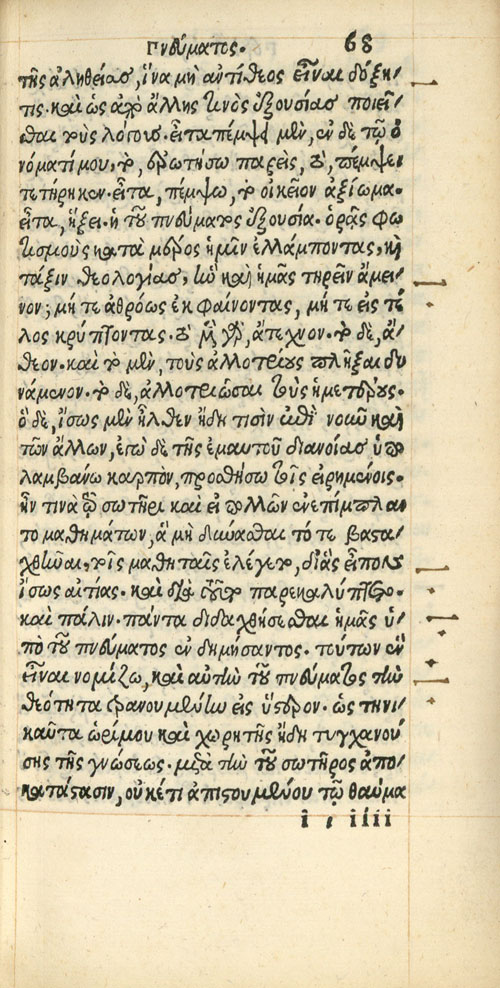 Πνεύματος. 68
τῆς ἀληθείας, ἵνα μὴ ἀντίθεος εἶναι δόξη
τις· καὶ ὡς ἀπ' ἄλλης τινὸς ἐξουσίας ποιεῖ
σθαι τοὺς λόγους. εἶτα πέμψει μὲν, ἐν δὲ τῷ ὀ
νόματί μου, τὸ, ἐρωτήσω παρεὶς, τὸ, πέμψει
τετήρηκεν. εἶτα, πέμψω, τὸ οἰκεῖον ἀξίωμα.
εἶτα, ἥξει· ἡ τοῦ πνεύματος ἐξουσία. ὁρᾷς φω
τισμοὺς κατὰ μέρος ἡμῖν ἐλλάμποντας, καὶ
τάξιν θεολογίας, ἣν καὶ ἡμᾶς τηρεῖν ἄμει
νον; μήτε ἀθρόως ἐκφαίνοντας, μήτε εἰς τέ
λος κρύπτοντας. τὸ μὲν γὰρ, ἄτεχνον. τὸ δὲ, ἄ
θεον. καὶ τὸ μὲν, τοὺς ἀλλοτρίους πλῆξαι δυ
νάμενον. τὸ δὲ, ἀλλοτριῶσαι τοὺς ἡμετέρους.
ὃ δὲ, ἴσως μὲν ἦλθεν ἤδη τισὶν ἐπὶ νοῦν καὶ
τῶν ἄλλων, ἐγὼ δὲ τῆς ἐμαυτοῦ διανοίας ὑπο
λαμβάνω καρπὸν, προσθήσω τοῖς εἰρημένοις.
ἦν τινὰ τῷ σωτῆρι καὶ εἰ πολλῶν ἐνεπίμπλαν
το μαθημάτων, ἃ μὴ δύνασθαι τότε βαστα
χθῆναι, τοῖς μαθηταῖς ἐλέγετο, δι' ἃς εἶπον
ἴσως αἰτίας. καὶ διὰ τοῦτο παρεκαλύπτετο.
καὶ πάλιν· πάντα διδαχθήσεσθαι ἡμᾶς ὑ
πὸ τοῦ πνεύματος ἐνδημήσαντος. τούτων ἓν
εἶναι νομίζω, καὶ αὐτὴν τοῦ πνεύματος τὴν
θεότητα τρανουμένην εἰς ὕστερον. ὡς τηνι
καῦτα ὡρίμου καὶ χωρητῆς ἤδη τυγχανού
σης τῆς γνώσεως. μετὰ τὴν τοῦ σωτῆρος ἀπο
κατάστασιν, οὐκέτι ἀπιστουμένου τῷ θαύμα
i , iiii